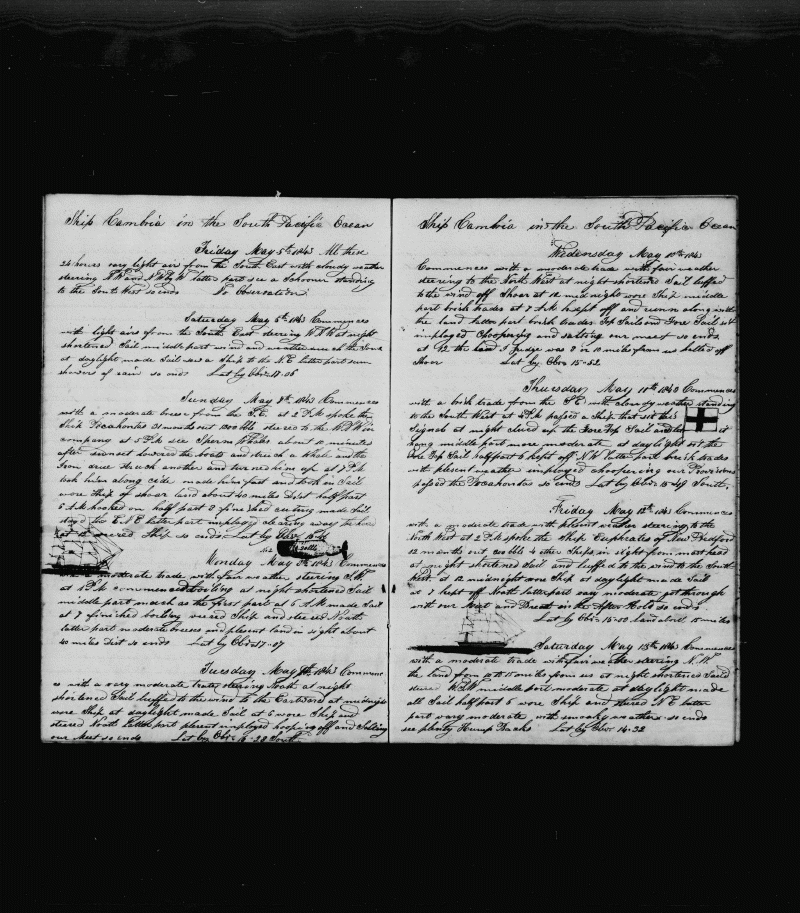 Ship Cambria in the South Pacific Ocean
Friday May 5th 1843 All these
24 hours vary light air from the South East with cloudy weather
steering N W and latter part see a Schooner standing
to the South West so ends No Observation
Saturday May 6th 1843 Commences
with light airs from the South East steering at night
shortened Sail middle part wind and weather much the same
at daylight made Sail saw a Ship to the N E latter part sum
showers of rain so ends Lat by Obr 17-06
Sunday May 1843 Commences
with a moderate breese from the S.E at 2 P.M spoke the
Ship Pocahontas 31 months out 1200 bbls steered to the in
company at 5 P.M see Sperm Whales about 10 minutes
after sunset lowered the boats and struck a Whale and the
Iron drue struck another and turned him up at 7 P.M
took him along side made him fast and took in Sail
wore Ship of shoar land about 40 miles Dist half part
5 A.M hooked on half part 7 finished cutting made Sail
stood latter part employed clearing away the head
Ship so ends Lat by Obr
bbls
Monday May 8th 1843 Commences
a moderate trade with fair weather steering S.W.
at 1 P.M commenced boiling at night shortened Sail
middle part much as the first part at 6 A.M made Sail
at 7 finished boiling weared Ship and steered North
latter part moderate breeses and plesent land in sight about
40 miles Dist so ends Lat by Obr 17-07
Tuesday May 9th 1843 Commenc
es with a vary moderate trade steering North at night
shortened Sail luffed to the wind to the Eastward at midnight
wore Ship at daylight made Sail at 6 wore Ship and
steered North latter part plesent employed hooping off and Salting
our Meet so ends Lat by Obr 16-28 South
Ship Cambria in the South Pacific Ocean
Wedensday May 10th 1843
Commences with a moderate trade with fair weather
steering to the North West at night shortened Sail luffed
to the wind off Shoar at 12 mid night wore Ship middle
part brisk trades at 7 A.M kept off and run along with
the land latter part brisk trades Top Sails and Fore Sail set
imployed Choopering and salting our meet so ends
at 12 the land I judge was 8 or 10 miles from us hulled off
Shoar Lat by Obr 15-52
Thursday May 11th 1843 Commences
with a brisk trade from the S E with cloudy weather standing
to the South West at 4 P.M passed a Ship that set this
Signal at night clued up the Fore Top Sail and
Long middle part more moderate at daylight set the
Fore Top Sail half part 5 kept off N.W latter part brisk trades
with plesent weather imployed choopering our Provisions
passed the Pocahontas so ends Lat by Obr 15-49 South
Friday May 12th 1843 Commences
with a moderate trade with plesent weather steering to the
North West at 2 P.M spoke the Ship Euphrates of New Bedford
12 months out 200 bbls 4 other Ships in sight from mast head
at night shortened Sail and luffed to the wind to the South
West at 12 midnight wore Ship at daylight made Sail
at 7 kept off North latter part vary moderate got through
with our Meet and in the After Hold so ends
Lat by Obr 15-50 land about 15 miles
Saturday May 13th 1843 Commences
with a moderate trade with fair weather steering N.W.
the land from 10 to 15 miles from us at night shortened Saild
steered middle part moderate at daylight made
all Sail half part 5 wore Ship and stered N E latter
part vary moderate with smoaky weather so ends
see plenty Hump Backs Lat by Obr 14-32